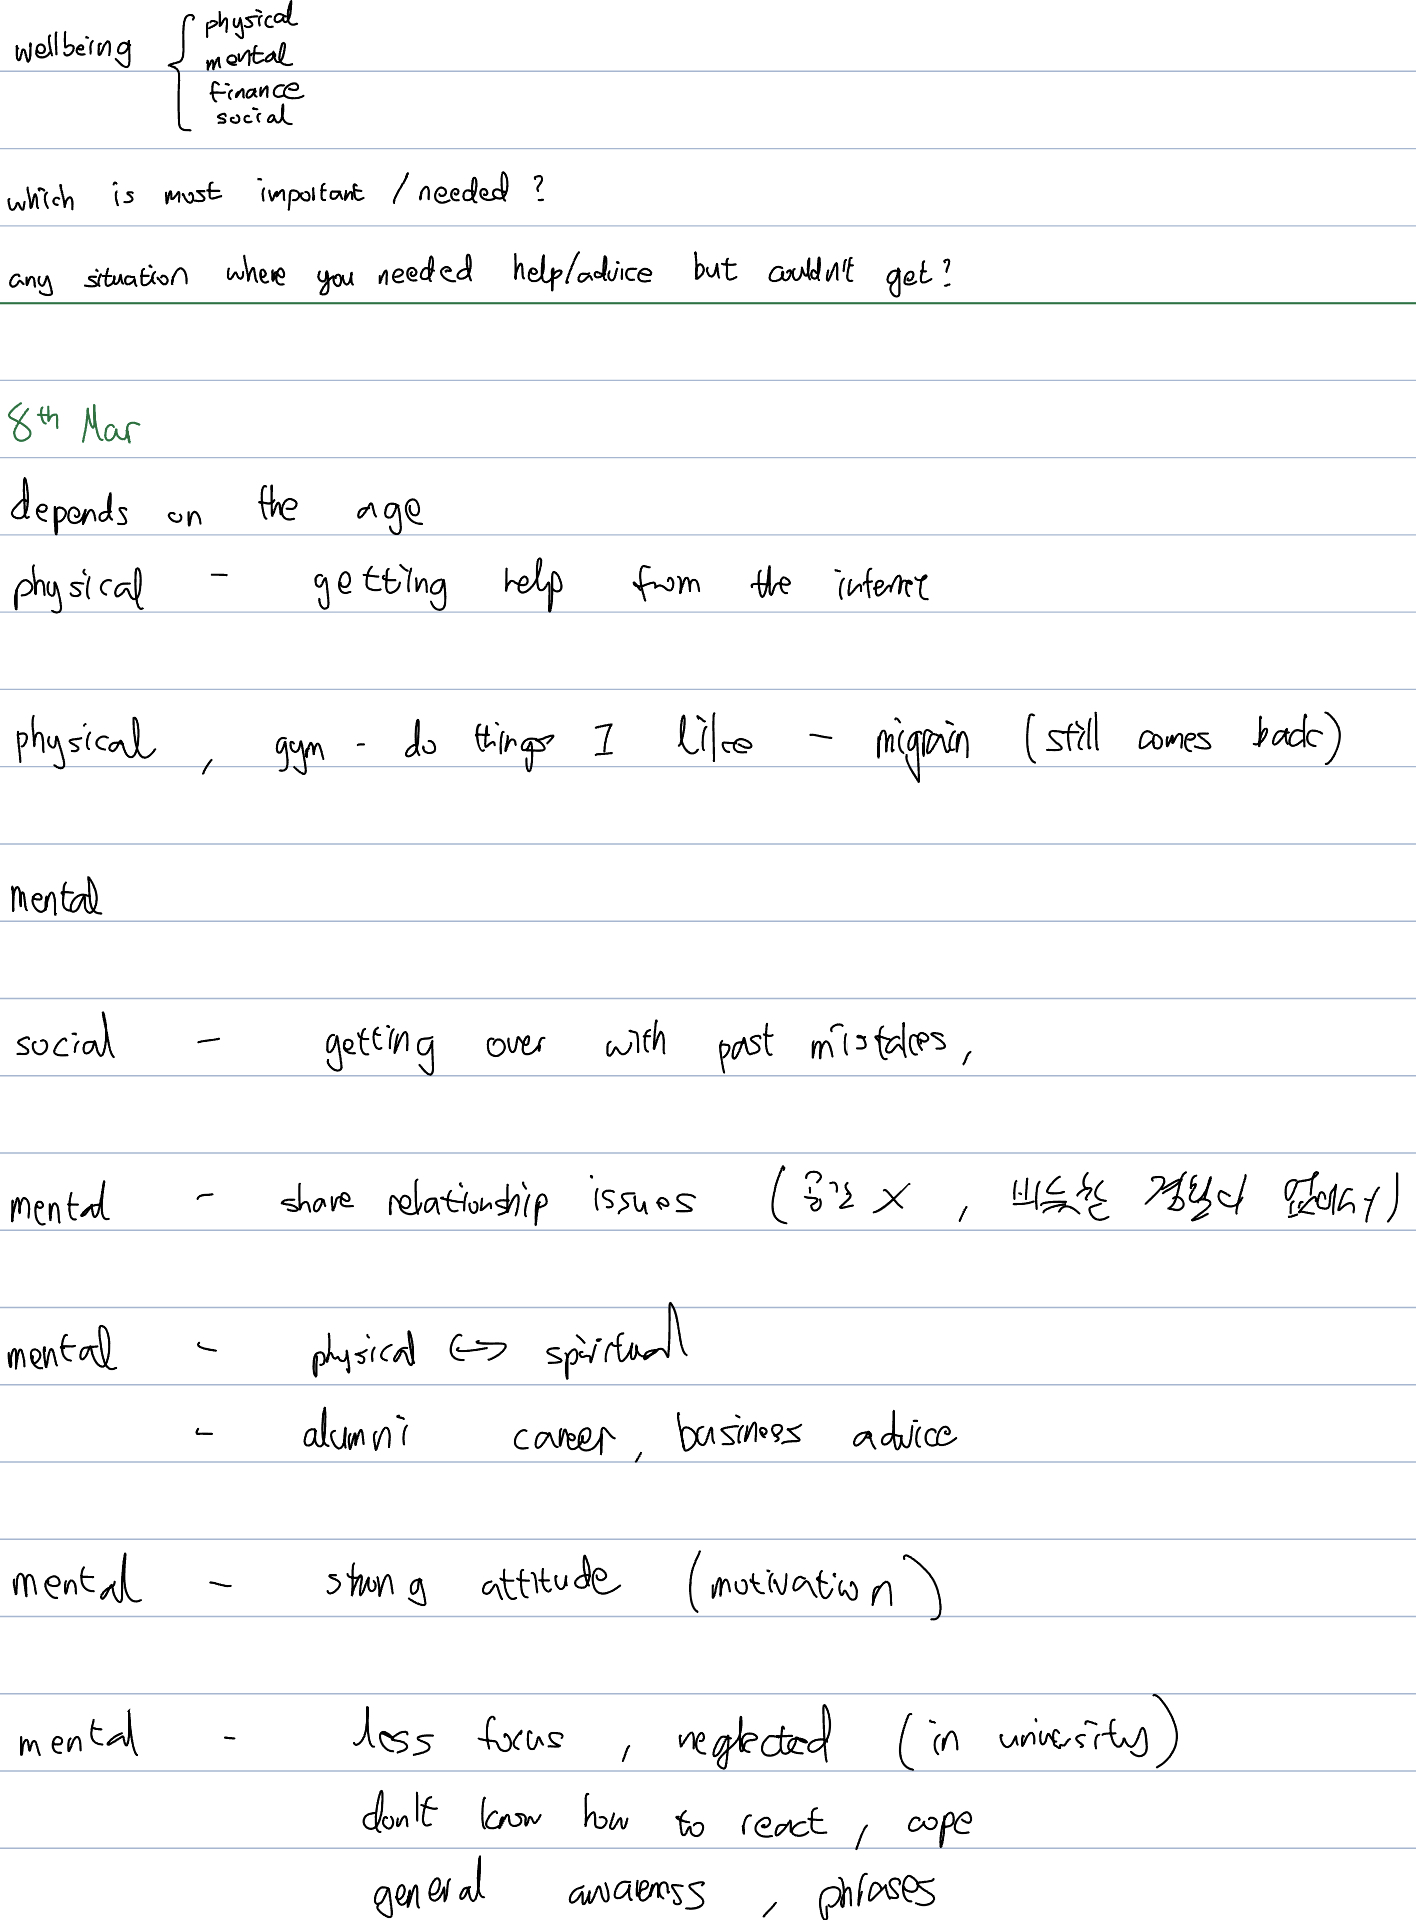 wellbeing
physical
mental
finance
social
which is most important / needed ?
any situation where you needed help/advice but couldn't get?
8th Mar
depends on the age
physical - getting help from the internet
physical , gym - do things I like - migrain (still comes back)
mental
social - getting over with past mistakes,
mental - share relationship issues (공감 X , 비슷한 경험이 없어서)
mental - physical <-> spiritual
- alumni career, business advice
mental - strong attitude (motivation)
mental - less focus , neglected (in university)
don't know how to react , cope
general awareness , phrases